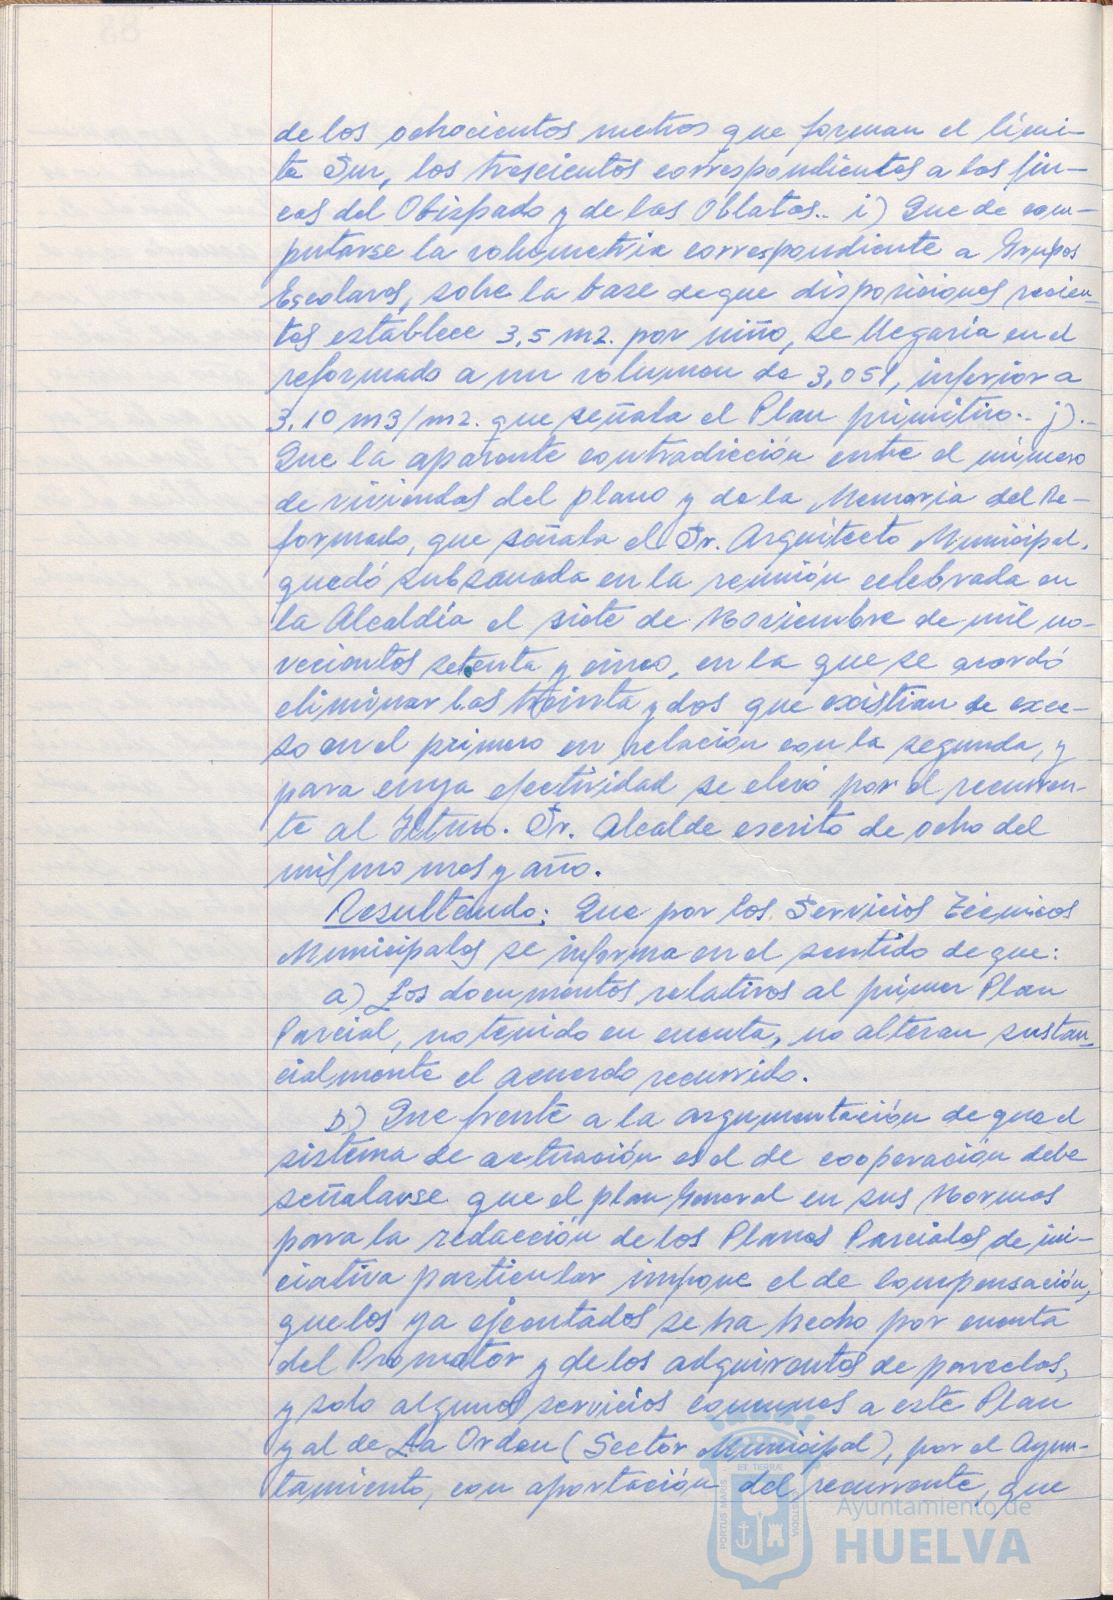 de los ochocientos metros que forman el lími-
te Sur, los trescientos correspondientes a las fin-
cas del Obispado y de las Oblatas.. i) Que de com-
putarse la volumetria correspondiente a Grupos
Escolares, sobre la base de que disposiciones recien-
tes establece 3,5 m2. por niño, se llegaría en el
reformado a un volumen de 3,051, inferior a
3,10 m3/m2. que señala el Plan primitivo.- j).-
Que la aparente contradicción entre el número
de viviendas del plano y de la Memoria del Re-
formado, que señala el Sr. Arquitecto Municipal,
quedó subsanada en la reunión celebrada en
la Alcaldía el siete de Noviembre de mil no-
vecientos setenta y cinco, en la que se acordó
eliminar las treinta y dos que existian de exce-
so en el primero en relación con la segunda, y
para cuya efectividad se elevó por el recurren-
te al Iltmo. Sr. Alcalde escrito de ocho del
mismo mes y año.
Resultando: Que por los Servicios Técnicos
Municipales se informa en el sentido de que:
a) Los documentos relativos al primer Plan
Parcial, no tenido en cuenta, no alteran sustan-
cialmente el acuerdo recurrido.
b) Que frente a la argumentación de que el
sistema de actuación es el de cooperación debe
señalarse que el plan General en sus Normas
para la redacción de los Planes Parciales de ini-
ciativa particular impone el de compensación,
que los ya ejecutados se ha hecho por cuenta
del Promotor y de los adquirentes de parcelas,
y solo algunos servicios comunes a este Plan
y al de La Orden (Sector Municipal), por el Ayun-
tamiento, con aportación del recurrente, que
PORTUS MARIS ET TERRÆ CUSTODIA
Ayuntamiento de
HUELVA